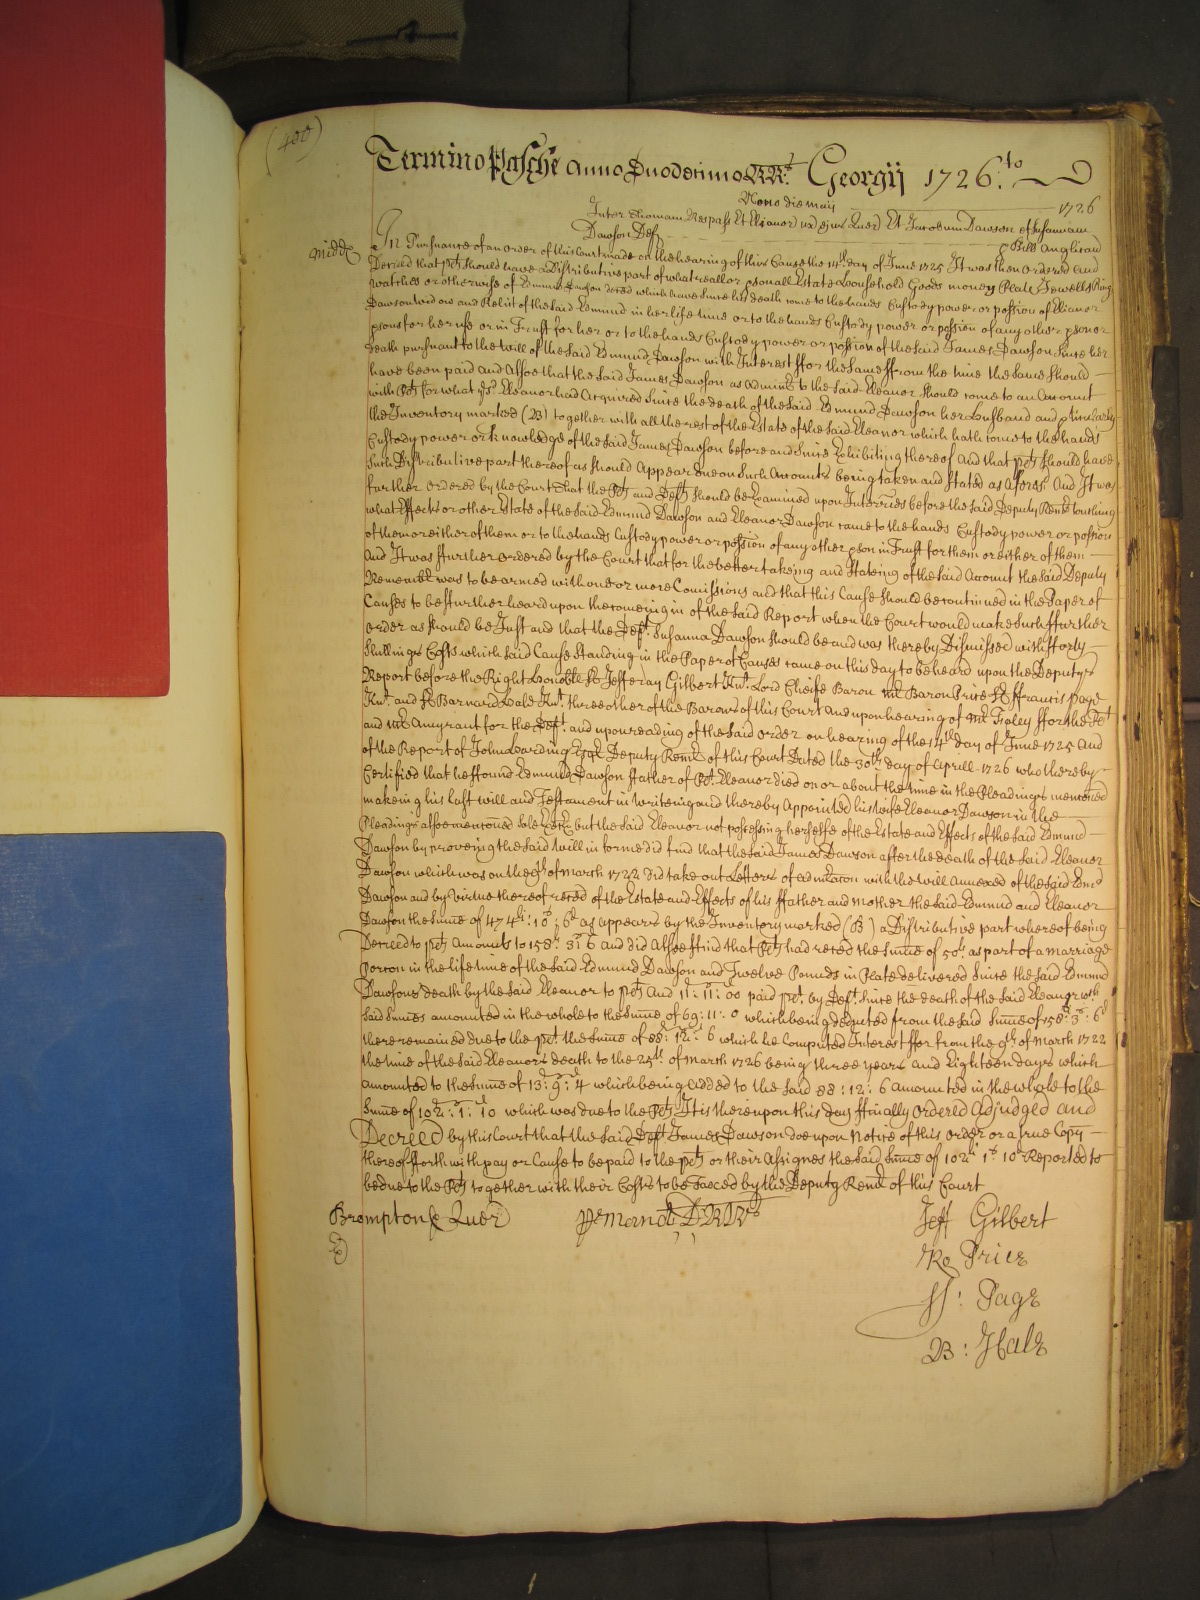 (400)
Termino Pasche Anno Duodecimo RRs. Georgij 1726.to
Nono die maij 1726
Inter Thomam Respass Et Elianor ux ejus Quer Et Jacobum Dawson et Susannam
Dawson Deft p Bill Anglican
Midds In Pursuance of an order of this Court made on the hearing of this Cause the 14th day of June 1725 It was then ordered and
Decreed that plts should have a distributive part of what reall or psonall Estate Household Goods money Plate Jewells Ring
watches or otherwise of Edmund Dawson deced which have since his death come to the hands Custody power or possion of Elianor
Dawson widow and Relict of the said Edmund in her life time or to the hands Custody power or possion of any other pson or
psons for her use or in Trust for her or to the hands Custody power or possion of the said James Dawson since her
death pursuant to the will of the said Edmund Dawson with Interest ffor the same ffrom the time the same should
have been paid and allsoe that the said James Dawson as Admint to the said Eleanor should come to an Account
with Plts for what ye sd Eleanor had Acquired since the death of the said Edmund Dawson her Husband and
the Inventory marked (B) together with all the rest of the Estate of the said Eleanor which hath come to the hands
Custody power or knowledge of the said James Dawson before and since Exhibiting thereof And that plts should have
such Distributive part thereof as should appear due on such Accounts being taken and stated as afores. And It was
further ordered by the Court that the Plts and Defts should be Examined upon Interries before the said Deputy Reme touching
what Effects or other Estate of the said Edmund Dawson and Eleanor Dawson came to the hands Custody power or possion
of them or either of them or to the hands Custody power or possion of any other pson in Trust for them or either of them
And It was ffurther ordered by the Court that for the better takeing and stateing of the said Account the said Deputy
Remembr was to be armed with one or more Comissions and that this Cause should be continued in the Paper of
Causes to be ffurther heard upon the comeing in of the said Report when the Court would make such ffurther
order as should be Just and that the Deft Susanna Dawson should be and was thereby Dismissed with fforty
shillings Costs which said Cause standing in the Paper of Causes came on this day to be heard upon the Deputys
Report before the Right Honoble Sr Jefferay Gilbert Knt. Lord Cheife Baron mr Baron Price Sr ffrancis Page
Knt. and Sr Barnard Hale Knt. three other of the Barons of this Court and upon hearing of mr ffor the Plt
and mr Amyrant for the Deft. and upon reading of the said order on hearing of the 14th day of June 1725 And
of the Report of John Harding Esqr Deputy Reme of this Court Dated the 30th day of Aprill 1726 who thereby
Certified that he ffound Edmund Dawson ffather of Plt. Eleanor died on or about the time in the Pleadings mentioned
makeing his last will and Testament in writeing and thereby Appointed his wife Eleanor Dawson in the
Pleadings allsoe mentioned sole Exrx but the said Eleanor not possessing herselfe of the Estate and Effects of the said Edmund
Dawson by proveing the said will in forme did find that the said James Dawson after the death of the said Eleanor
Dawson which was on the 9th of march 1722 did take out Letters of admicacon with the will Annexed of the said Edmd
Dawson and by virtue thereof reced of the Estate and Effects of his ffather and mother the said Edmund and Eleanor
Dawson the Summe of 474li: 10s: 6d as appears by the Inventory marked (B) a Distributive part whereof being
Decreed to plts Amounts to 158li. 3s 6 and did Allsoe ffind that Plts had reced the summe of 50li as part of a marriage
Porcon in the life time of the said Edmund Dawson and Twelve Pounds in Plate delivered since the said Edmund
Dawsons death by the said Eleanor to plts And 11: 11: 00 paid plt. by Deft. since the death of the said Eleanor wch
said Summes amounted in the whole to the Summe of 69: 11: 0 which being deducted from the said Summe of 158li: 3s: 6d
there remained due to the plt. the Summe of 88: 12: 6 which he Computed Interest ffor from the 9th of March 1722
the time of the said Eleanors death to the 25th of March 1726 being three years and Eighteen days which
amounted to the Summe of 13: 9: 4 which being added to the said 88: 12: 6 amounted in the whole to the
Summe of 102: 1: 10 which was due to the Plts It is thereupon this day ffinally Ordered Adjudged and
Decreed by this Court that the said Deft James Dawson doe upon Notice of this order or a true Copy
thereof fforthwith pay or Cause to be paid to the plts or their Assignes the said Summe of 102li 1s 10d Reported to
be due to the Plts together with their Costs to be taxed by the Deputy Reme of this Court
Brompton p Quer
Jeff Gilbert
Ro Price
ff: Page
B: Hale